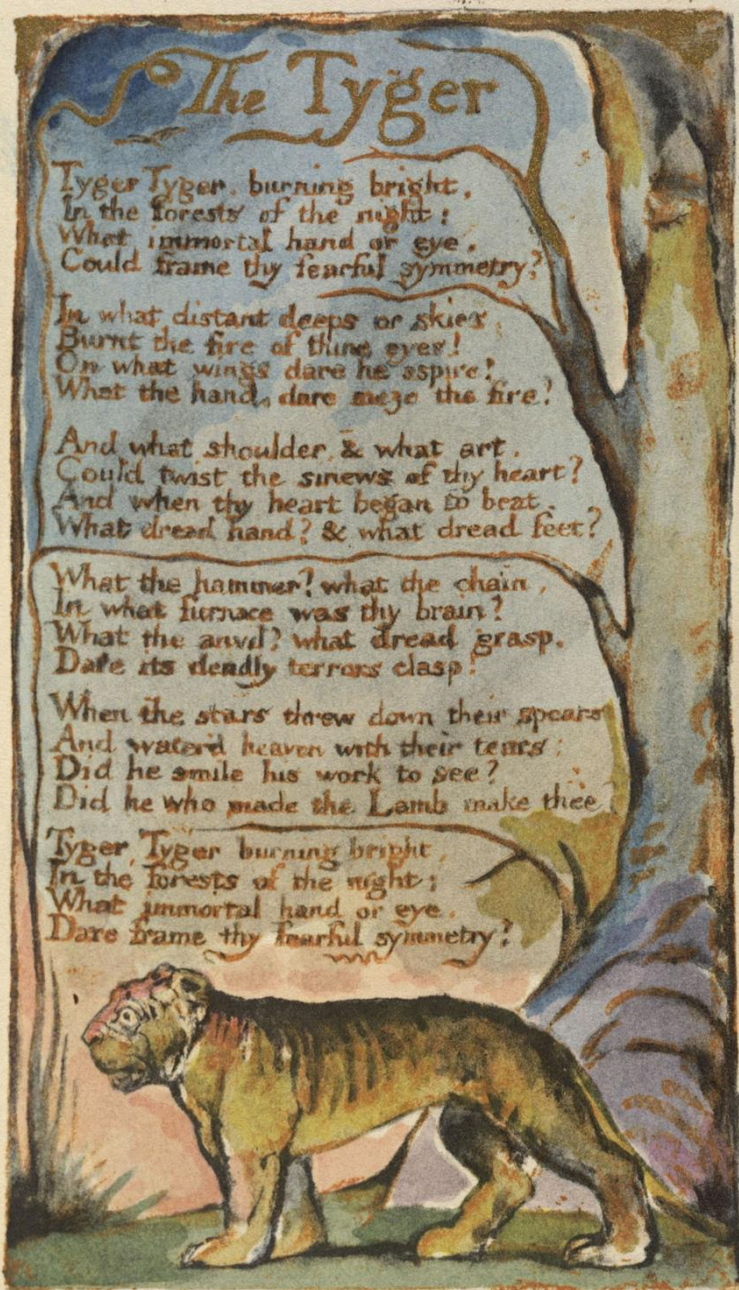 The Tyger
Tyger Tyger, burning bright,
In the forests of the night:
What immortal hand or eye,
Could frame thy fearful symmetry?
In what distant deeps or skies,
Burnt the fire of thine eyes!
On what wings dare he aspire!
What the hand, dare sieze the fire?
And what shoulder, & what art,
Could twist the sinews of thy heart?
And when thy heart began to beat,
What dread hand? & what dread feet?
What the hammer? what the chain,
In what furnace was thy brain?
What the anvil? what dread grasp,
Dare its deadly terrors clasp!
When the stars threw down their spears
And water'd heaven with their tears:
Did he smile his work to see?
Did he who made the Lamb make thee?
Tyger Tyger burning bright,
In the forests of the night:
What immortal hand or eye,
Dare frame thy fearful symmetry?